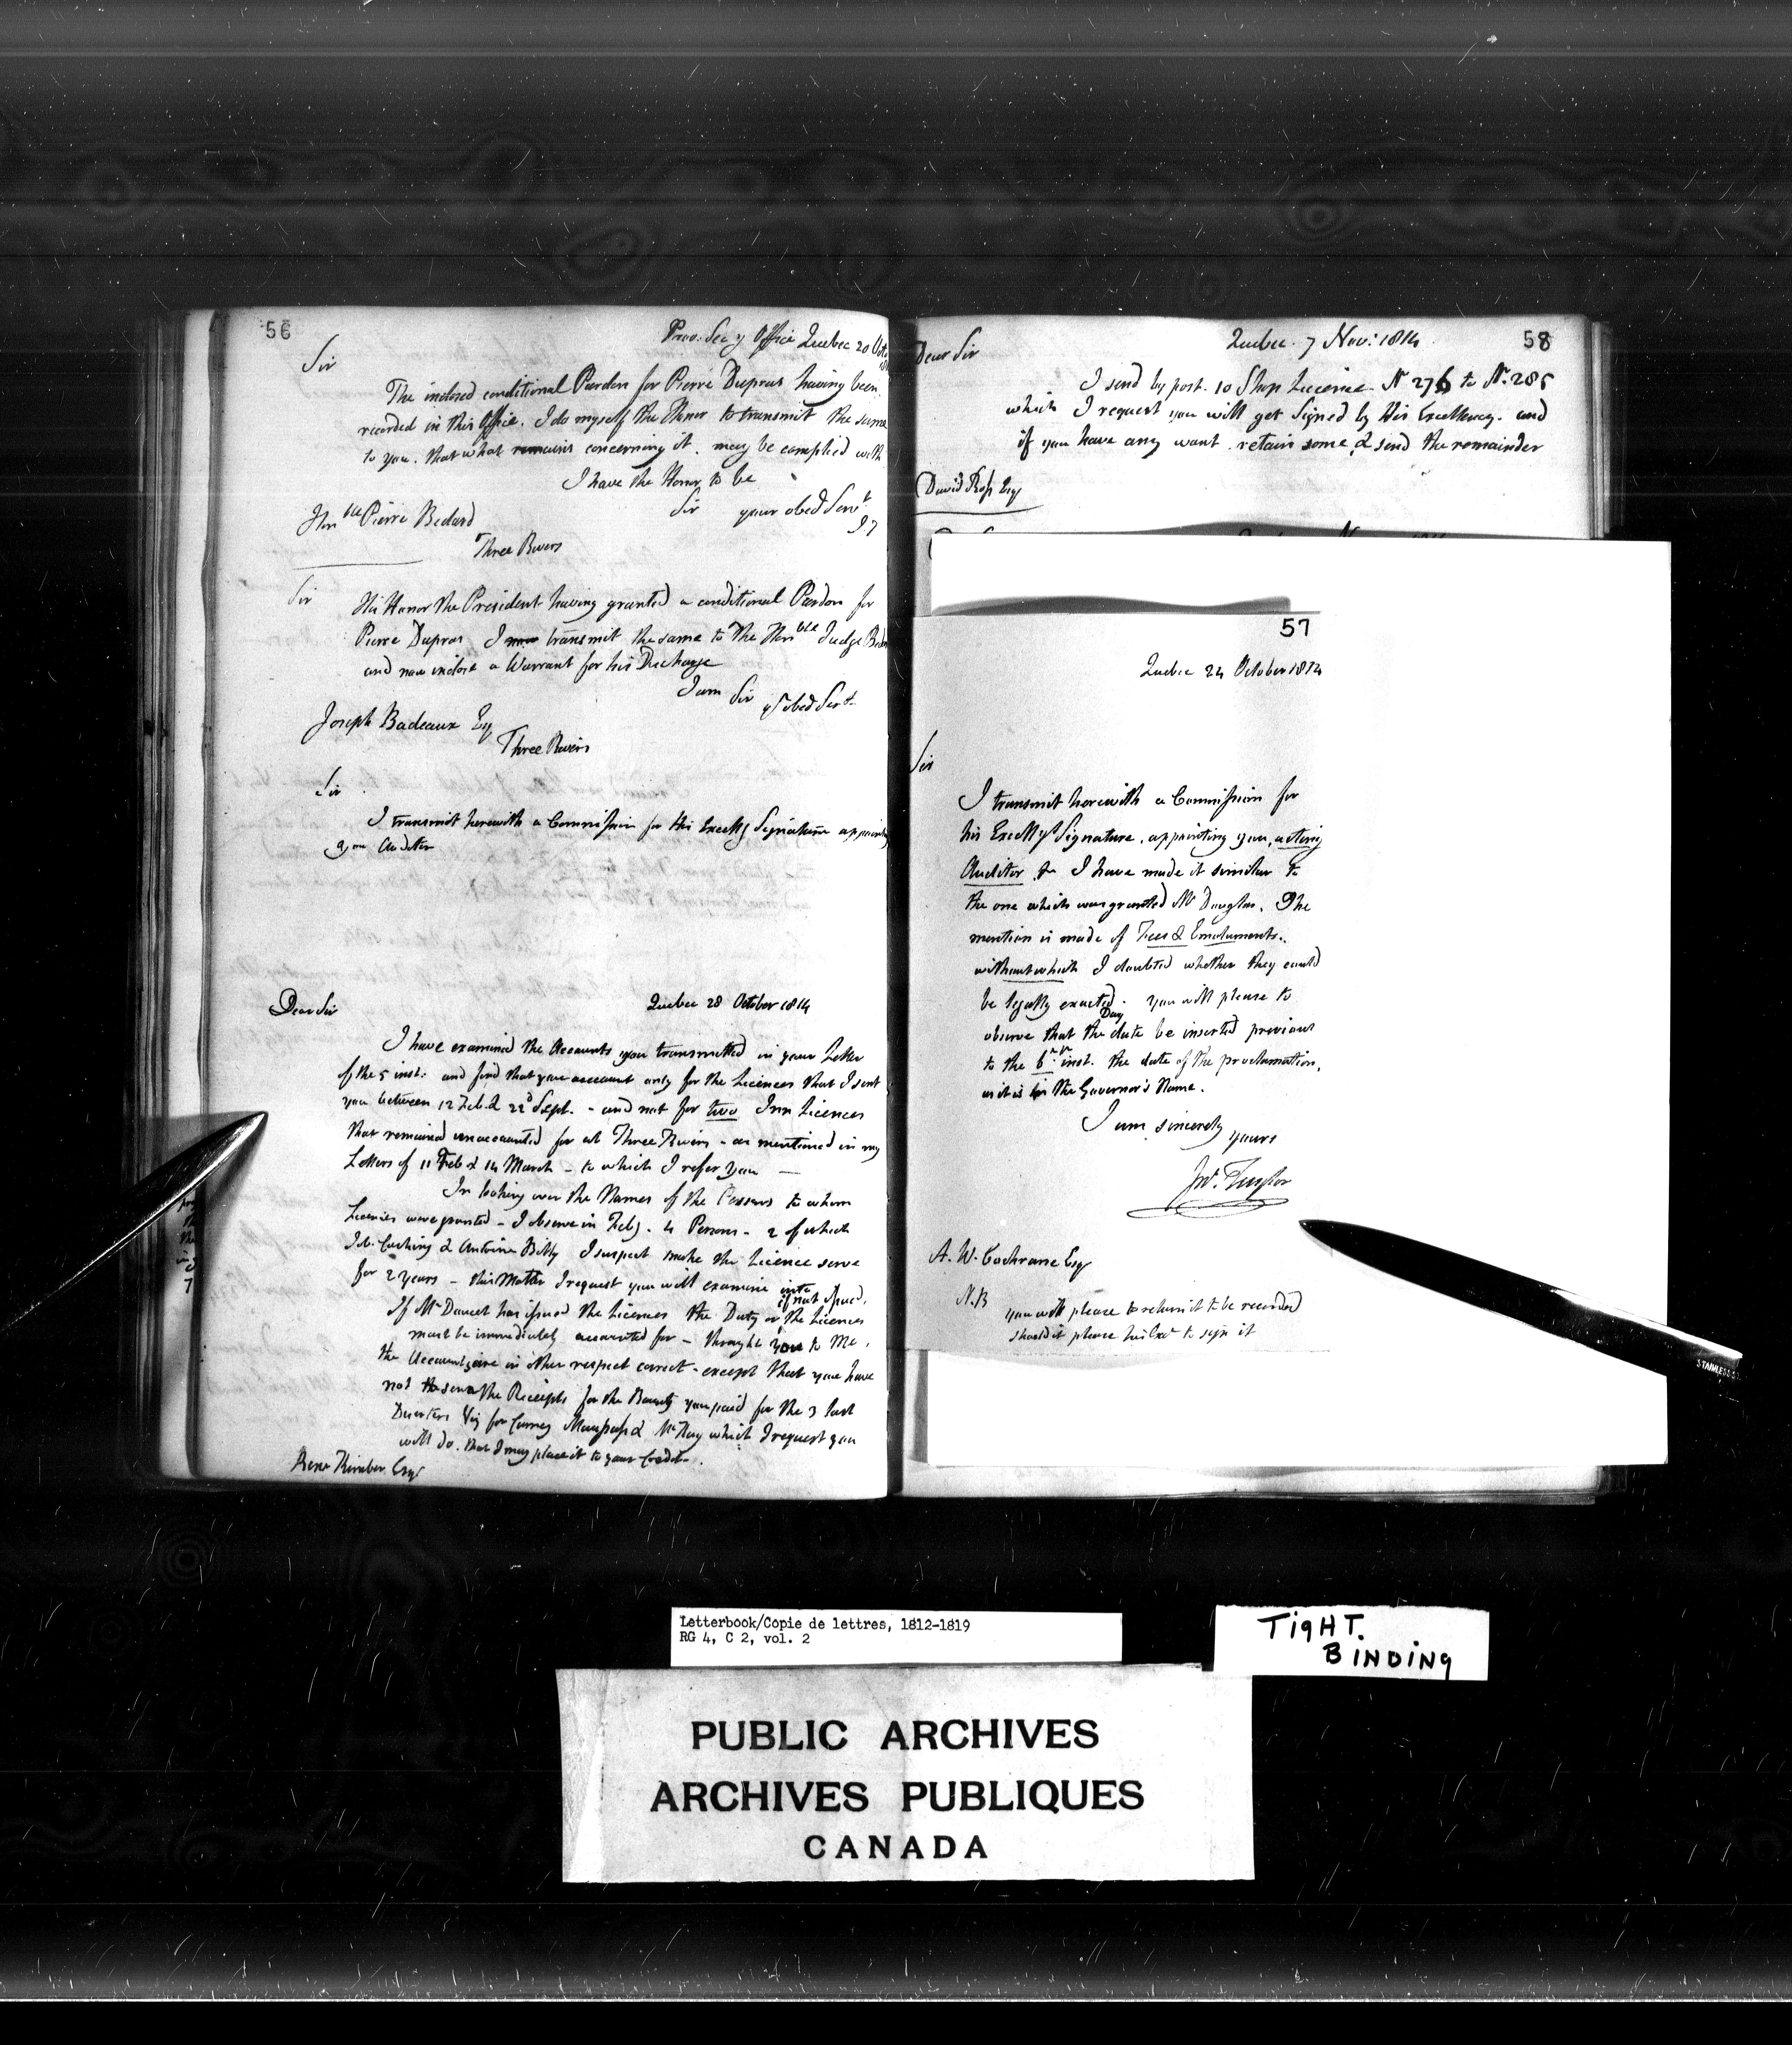 56
Prov. Secy Office Quebec 20 Oct
Sir
The inclosed conditional Pardon for Pierre Dupras having been
recorded in this Office. I do myself the Honor to transmit the same
to you. that what remains concerning it. may be complied with
I have the Honor to be
Sir your obed Servt
Honble Pierre Bedard
Three Rivers
Sir
His Honor the President having granted a conditional Pardon for
Pierre Dupras I transmit the same to The Honble Judge
and now inclose a Warrant for his Discharge
I am Sir yr obed Servt
Joseph Badeaux Esq
Three Rivers
Sir
I transmit herewith a Commission for His Excellys Signature
you Auditor
Dear Sir
Quebec 28 October 1814
I have examined the Accounts you transmitted in your Letter
of the 5 inst: and find that you account only for the Licences that I sent
you between 12 Feb. & 22d Sept. - and not for two Inn Licences
that remained unaccounted for at Three Rivers - as mentioned in my
Letters of 11 Feb & 14 March - to which I refer you —
In looking over the Names of the Persons to whom
Licences were granted - I observe in Feby. 4 Persons - 2 of which
& Antoine I suspect make the Licence serve
for 2 years - this Matter I request you will examine into
if not issued,
If Mr Doucet has issued the Licences the Duty or the Licences
must be immediately accounted for - through you to Me,
the Accounts are in other respect correct - except that you have
not the Receipts for the Bounty you paid for the 3 last
Quarters Viz for & McKay which I request you
will do. that I may place it to your Credit.
Rene Kimber Esqr
58
Quebec 7 Nov: 1814
Dear Sir
I send by post. 10 Shop Licence N 276 to N. 285
which I request you will get Signed by His Excellency. and
if you have any want. retain some, & send the remainder
David Ross Esq
57
Quebec 24 October 1814
Sir
I transmit herewith a Commission for
his Excellys Signature, appointing you, acting
Auditor I have made it similar to
the one which was granted Mr Douglas. The
mention is made of Fees & Emoluments.
without which I doubted whether they could
be legally exacted. you will please to
Day
observe that the date be inserted previous
to the 6 inst. the date of the proclamation,
as it is in the Governor's Name.
I am sincerely
yours
Jno. Taylor
A. W. Cochrane Esqr
N.B
you will please to return it to be recorded
should it please his to sign it
STAINLESS
Letterbook/Copie de lettres, 1812-1819
RG 4, C 2, vol. 2
TIGHT.
BINDING
PUBLIC ARCHIVES
ARCHIVES PUBLIQUES
CANADA